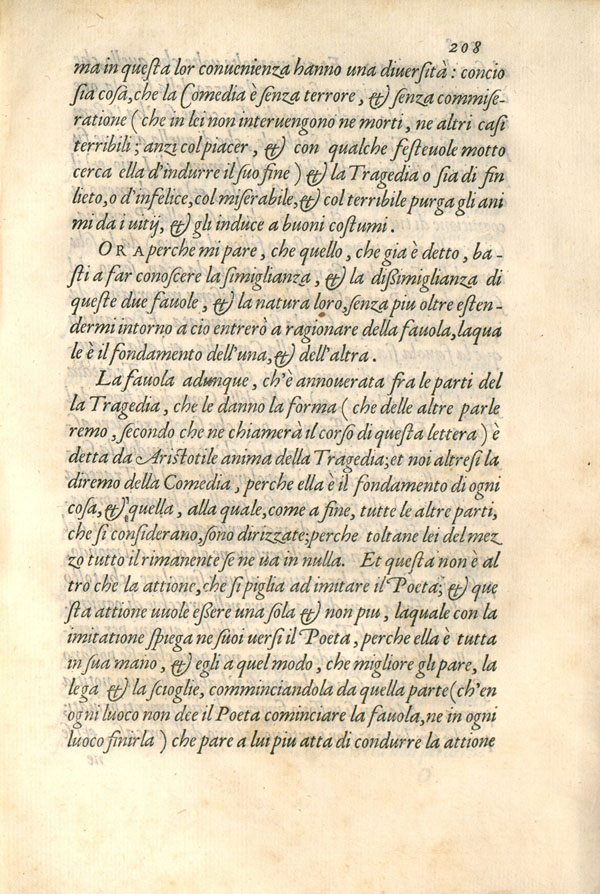 208
ma in queſta lor conuenienza hanno una diuerſità : concio
ſia coſa, che la Comedia è ſenza terrore, & ſenza commiſe-
ratione ( che in lei non interuengono ne morti, ne altri caſi
terribili ; anzi col piacer, & con qualche feſteuole motto
cerca ella d'indurre il ſuo fine ) & la Tragedia o ſia di fin
lieto, o d'infelice, col miſerabile, & col terribile purga gli ani
mi da i uitij, & gli induce a buoni coſtumi.
ORA perche mi pare, che quello, che gia è detto, ba-
ſti a far conoſcere la ſimiglianza, & la dißimiglianza di
queſte due fauole, & la natura loro, ſenza piu oltre eſten-
dermi intorno a cio entrerò a ragionare della fauola, laqua
le è il fondamento dell'una, & dell'altra.
La fauola adunque, ch'è annouerata fra le parti del
la Tragedia, che le danno la forma ( che delle altre parle
remo, ſecondo che ne chiamerà il corſo di queſta lettera ) è
detta da Ariſtotile anima della Tragedia; et noi altreſi la
diremo della Comedia, perche ella è il fondamento di ogni
coſa, & quella, alla quale, come a fine, tutte le altre parti,
che ſi conſiderano, ſono dirizzate; perche toltane lei del mez
zo tutto il rimanente ſe ne ua in nulla. Et queſta non è al
tro che la attione, che ſi piglia ad imitare il Poeta; & que
ſta attione uuole eßere una ſola & non piu, laquale con la
imitatione ſpiega ne ſuoi uerſi il Poeta, perche ella è tutta
in ſua mano, & egli a quel modo, che migliore gli pare, la
lega & la ſcioglie, comminciandola da quella parte (ch'en
ogni luoco non dee il Poeta cominciare la fauola, ne in ogni
luoco finirla ) che pare a lui piu atta di condurre la attione